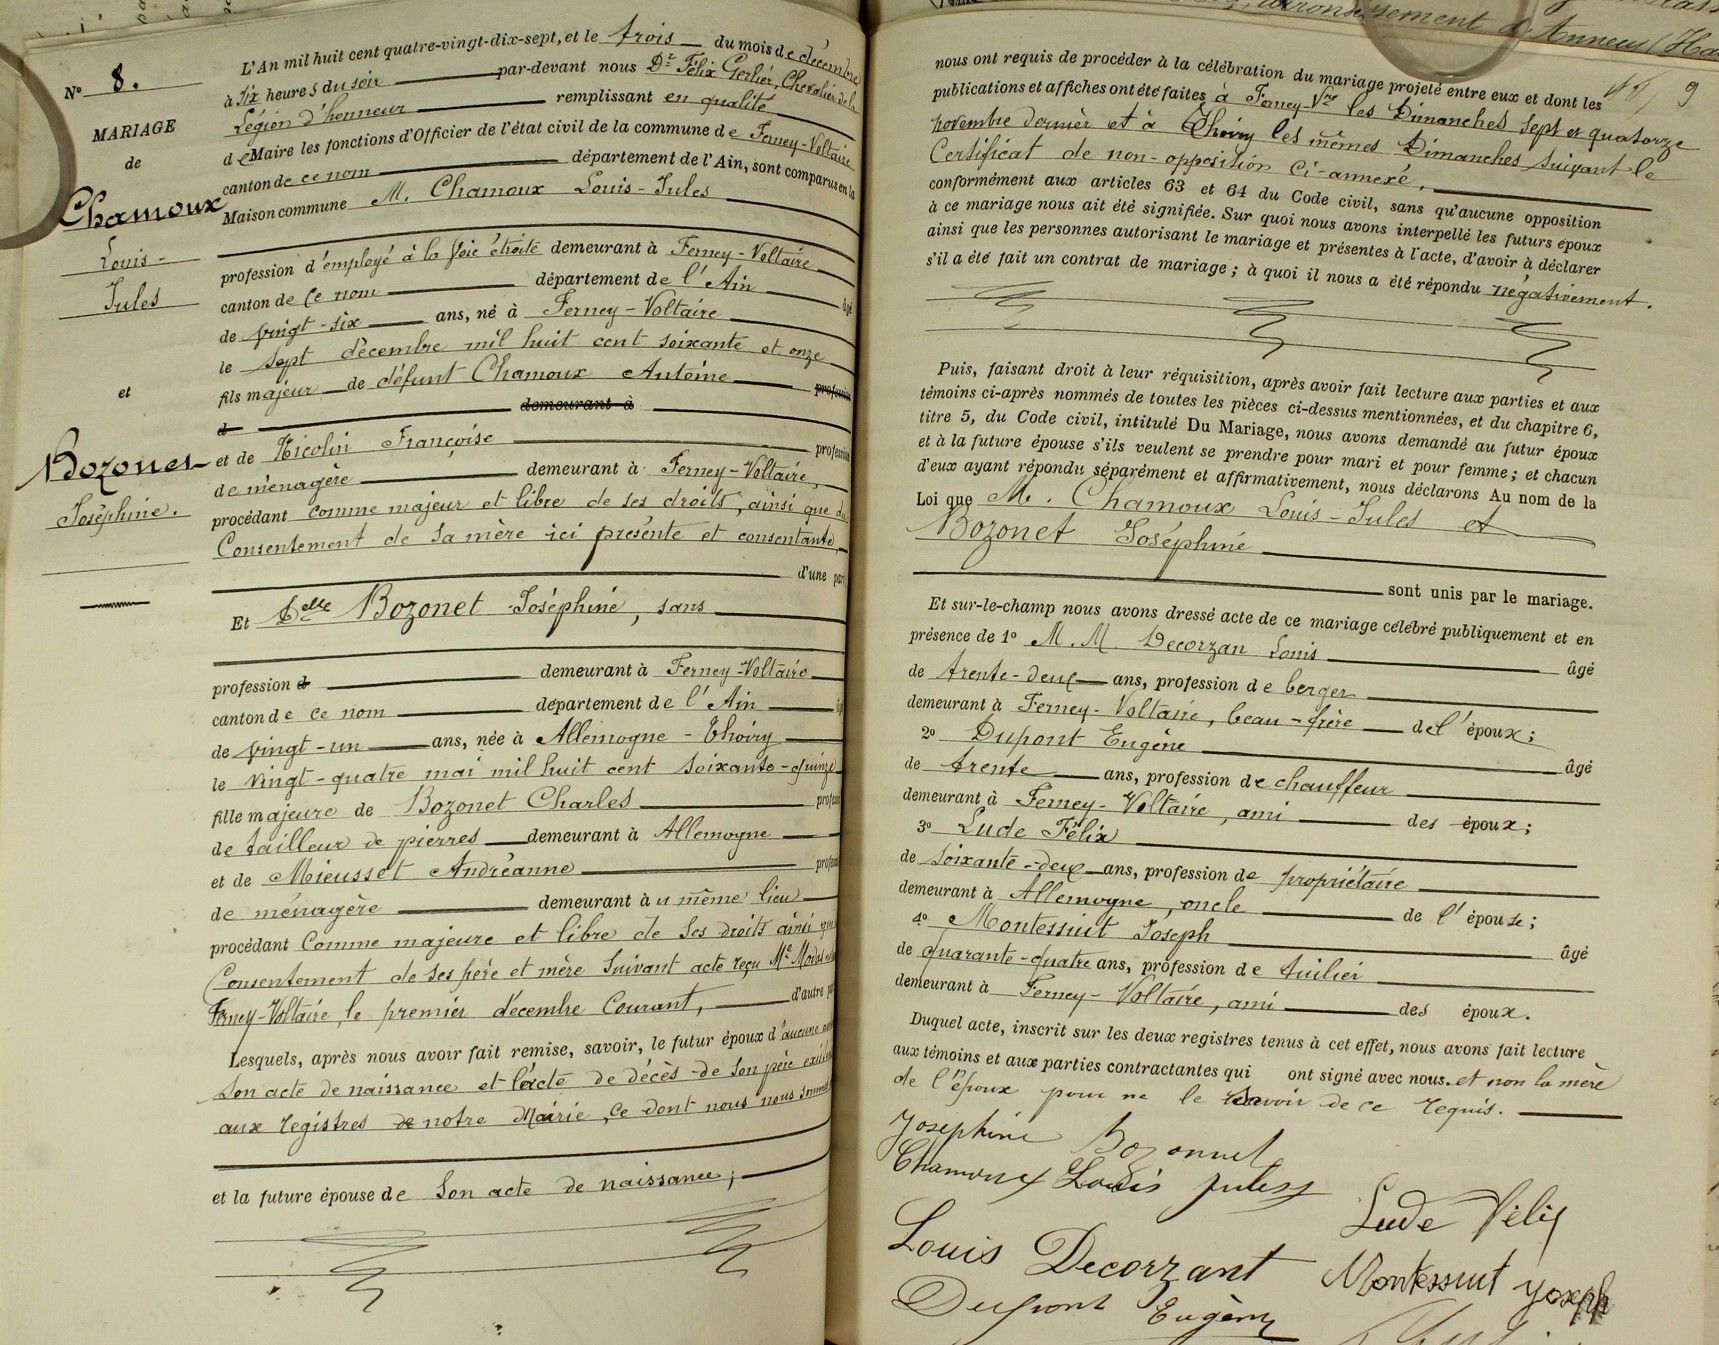 N° 8.
MARIAGE
de
Chamoux
Louis-
Jules
et
Bozonet
Joséphine.
L'An mil huit cent quatre-vingt-dix-sept, et le trois du mois de décembre
à six heures du soir par-devant nous Dr Félix Gerlier, Chevalier de la
Légion d'honneur remplissant en qualité
de Maire les fonctions d'Officier de l'état civil de la commune de Ferney-Voltaire
canton de ce nom département de l'Ain, sont comparus en la
Maison commune M. Chamoux Louis-Jules
profession d'employé à la voie étroite demeurant à Ferney-Voltaire
canton de ce nom département de l'Ain âgé
de vingt-six ans, né à Ferney-Voltaire
le sept décembre mil huit cent soixante et onze
fils majeur de défunt Chamoux Antoine profession
d demeurant à
et de Nicolin Françoise profession
de ménagère demeurant à Ferney-Voltaire,
procédant comme majeur et libre de ses droits, ainsi que du
Consentement de sa mère ici présente et consentante,
d'une part
Et Delle Bozonet Joséphine, sans
profession d demeurant à Ferney-Voltaire
canton de ce nom département de l'Ain
de vingt-un ans, née à Allemogne-Thoiry
le vingt-quatre mai mil huit cent soixante-quinze
fille majeure de Bozonet Charles
de tailleur de pierres demeurant à Allemogne
et de Mieusset Andréanne
de ménagère demeurant au même lieu
procédant comme majeure et libre de ses droits ainsi que
Consentement de ses père et mère suivant acte reçu Me
Ferney-Voltaire, le premier décembre courant, d'autre part
Lesquels, après nous avoir fait remise, savoir, le futur époux d'aucune
son acte de naissance et l'acte de décès de son père
aux registres de notre Mairie, ce dont nous nous sommes
et la future épouse de son acte de naissance;
9
nous ont requis de procéder à la célébration du mariage projeté entre eux et dont les
publications et affiches ont été faites à Ferney-Vre les Dimanches sept et quatorze
novembre dernier et à Thoiry les mêmes Dimanches suivant le
Certificat de non-opposition ci-annexé,
conformément aux articles 63 et 64 du Code civil, sans qu'aucune opposition
à ce mariage nous ait été signifiée. Sur quoi nous avons interpellé les futurs époux
ainsi que les personnes autorisant le mariage et présentes à l'acte, d'avoir à déclarer
s'il a été fait un contrat de mariage; à quoi il nous a été répondu négativement.
Puis, faisant droit à leur réquisition, après avoir fait lecture aux parties et aux
témoins ci-après nommés de toutes les pièces ci-dessus mentionnées, et du chapitre 6,
titre 5, du Code civil, intitulé Du Mariage, nous avons demandé au futur époux
et à la future épouse s'ils veulent se prendre pour mari et pour femme; et chacun
d'eux ayant répondu séparément et affirmativement, nous déclarons Au nom de la
Loi que M. Chamoux Louis-Jules et
Bozonet Joséphine
sont unis par le mariage.
Et sur-le-champ nous avons dressé acte de ce mariage célébré publiquement et en
présence de 1° M. M. Decorzan Louis âgé
de trente-deux ans, profession de berger
demeurant à Ferney-Voltaire, beau-frère de l'époux;
2° Dupont Eugène âgé
de trente ans, profession de chauffeur
demeurant à Ferney-Voltaire, ami des époux;
3° Lude Félix
de soixante-deux ans, profession de propriétaire
demeurant à Allemogne, oncle de l'épouse;
4° Montessuit Joseph âgé
de quarante-quatre ans, profession de tuilier
demeurant à Ferney-Voltaire, ami des époux.
Duquel acte, inscrit sur les deux registres tenus à cet effet, nous avons fait lecture
aux témoins et aux parties contractantes qui ont signé avec nous. et non la mère
de l'époux pour ne le savoir de ce requis.
Joséphine Bozonnet
Chamoux Louis Jules
Lude Félix
Louis Decorzant
Montessuit Joseph
Dupont Eugène